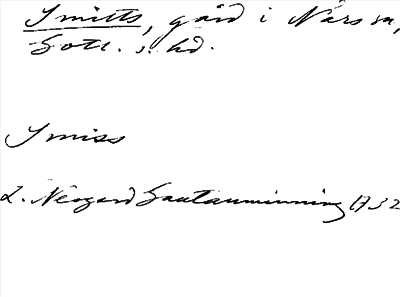 Smitts, gård i Närs sn,
Gotl. s. hd.
Smiss
L. Neogard Gautauminning 1732